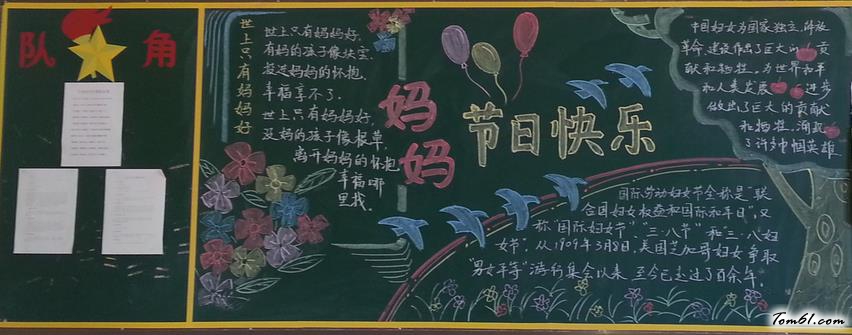 队 角
世上只有妈妈好
世上只有妈妈好,
有妈的孩子像块宝,
投进妈妈的怀抱,
幸福享不了。
世上只有妈妈好,
没妈的孩子像根草,
离开妈妈的怀抱
幸福哪
里找。
妈妈
节日快乐
中国妇女为国家独立,解放
革命,建设作出了巨大的贡
献和牺牲。为世界和平
和人类发展 进步
做出了巨大的贡献
和牺牲,涌现
了许多巾帼英雄
国际劳动妇女节全称是“联
合国妇女权益和国际和平日”,又
称“国际妇女节”“三·八节”和三·八妇
女节”。从1909年3月8日,美国芝加哥妇女争取
“男女平等”游行集会以来 至今已走过了百余年。
Tom61.com